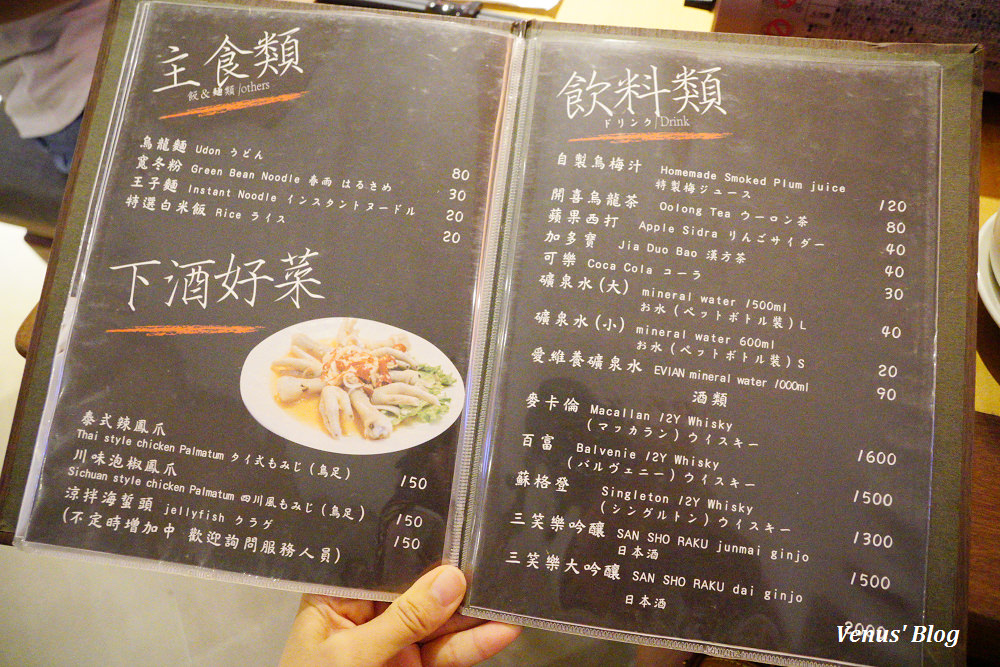 主食類
餃&麵類/others
烏龍麵 Udon うどん 80
寬冬粉 Green Bean Noodle 春雨 はるさめ 30
王子麵 Instant Noodle インスタントヌードル 20
特選白米飯 Rice ライス 20
下酒好菜
泰式辣鳳爪
Thai style chicken Palmatum タイ式もみじ(鳥足) 150
川味泡椒鳳爪
Sichuan style chicken Palmatum 四川風もみじ(鳥足) 150
涼拌海蜇頭 jellyfish クラゲ 150
(不定時增加中 歡迎詢問服務人員)
飲料類
ドリンク/Drink
自製烏梅汁 Homemade Smoked Plum juice
特製梅ジュース 120
開喜烏龍茶 Oolong Tea ウーロン茶 80
蘋果西打 Apple Sidra りんごサイダー 40
加多寶 Jia Duo Bao 漢方茶 40
可樂 Coca Cola コーラ 30
礦泉水(大) mineral water 1500ml
お水(ペットボトル裝)L 40
礦泉水(小) mineral water 600ml
お水(ペットボトル裝)S 20
愛維養礦泉水 EVIAN mineral water 1000ml 90
酒類
麥卡倫 Macallan 12Y Whisky
(マッカラン)ウイスキー 1600
百富 Balvenie 12Y Whisky
(バルヴェニー)ウイスキー 1500
蘇格登 Singleton 12Y Whisky
(シングルトン)ウイスキー 1300
三笑樂吟釀 SAN SHO RAKU junmai ginjo
日本酒 1500
三笑樂大吟釀 SAN SHO RAKU dai ginjo
日本酒 2000
Venus' Blog